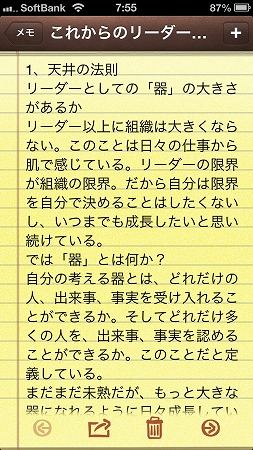 SoftBank 7:55 87%
メモ これからのリーダー... +
1、天井の法則
リーダーとしての「器」の大きさ
があるか
リーダー以上に組織は大きくなら
ない。このことは日々の仕事から
肌で感じている。リーダーの限界
が組織の限界。だから自分は限界
を自分で決めることはしたくない
し、いつまでも成長したいと思い
続けている。
では「器」とは何か？
自分の考える器とは、どれだけの
人、出来事、事実を受け入れるこ
とができるか。そしてどれだけ多
くの人を、出来事、事実を認める
ことができるか。このことだと定
義している。
まだまだ未熟だが、もっと大きな
器になれるように日々成長してい